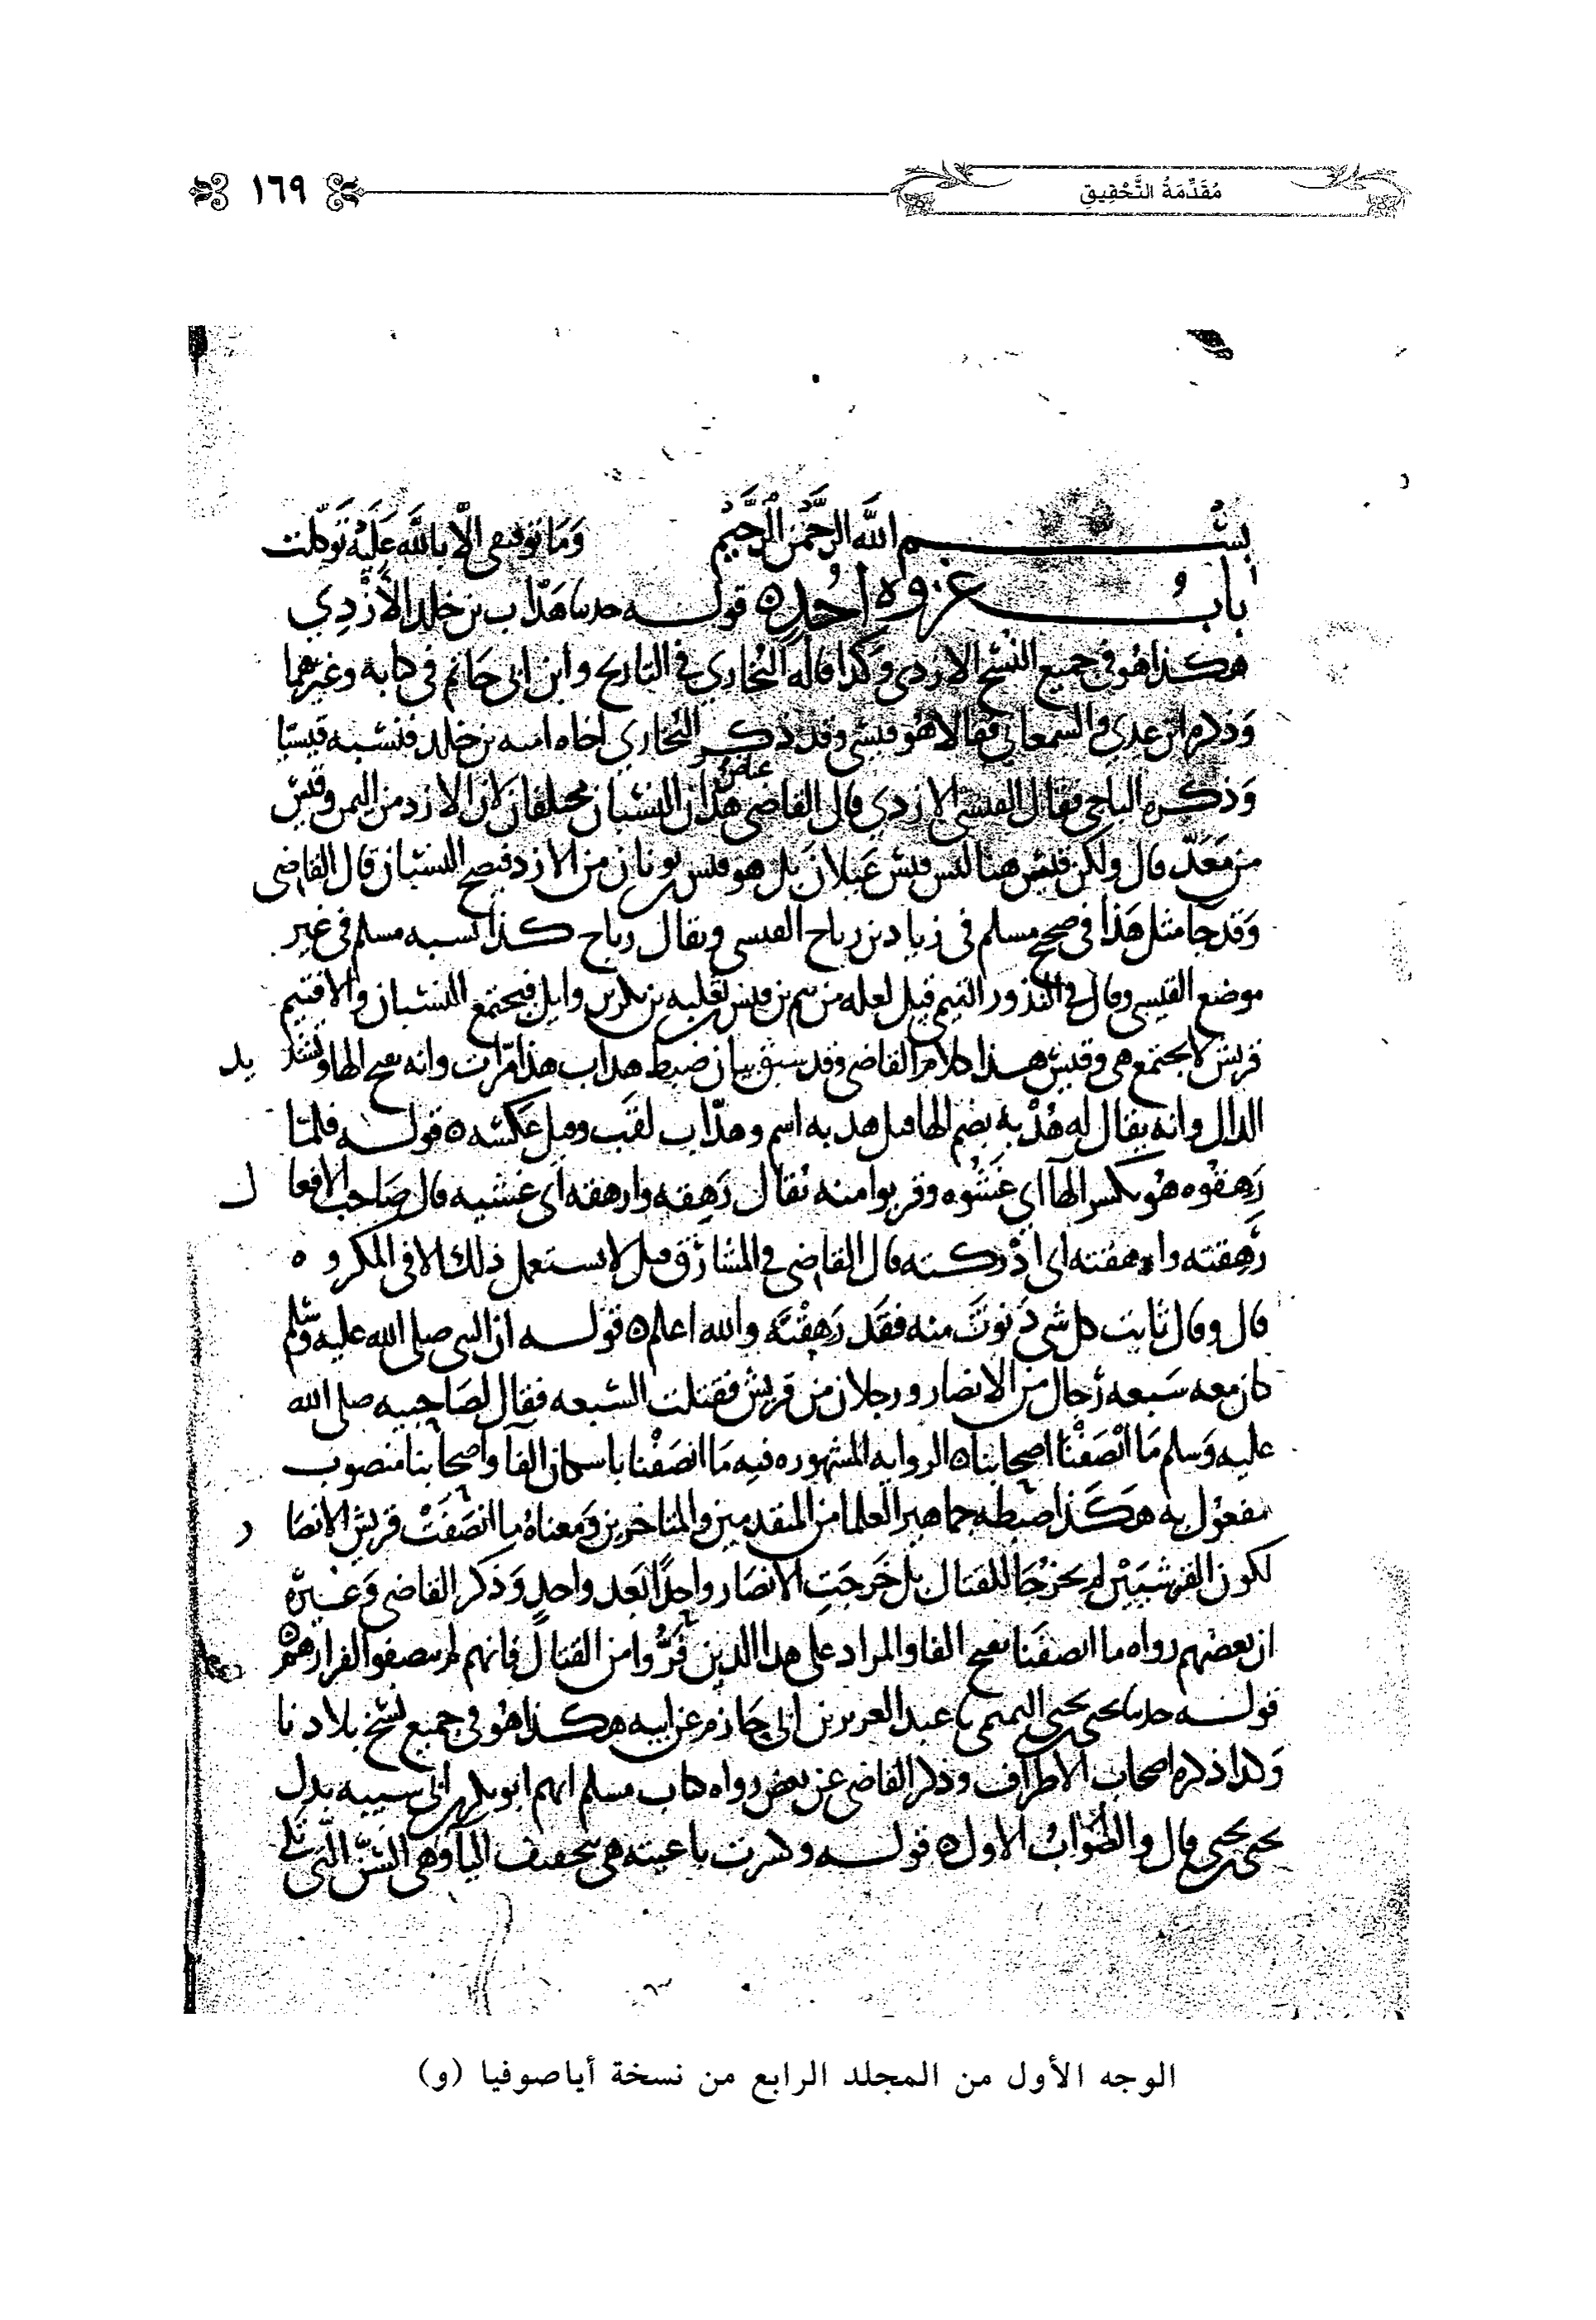 مُقَدِّمَةُ التَّحْقِيقِ
١٦٩
بسم الله الرَّحمن الرَّحيم وَمَا توفيقى الّا بالله عَلَيْه تَوكّلت
باب غزوه أُحُد ٥ قوله حدثنا هَدّاب بن خلد الأزْدِي
هكذا هو في جميع النسخ الازدى وكذا قاله البُخاري في التاريخ وابن ابى حَاتم في كتابه وغيرهما
وَذكره ابن عدي والسمعاني فقالا هُو قيسى وقد ذكر البُخاري اخاه اميه بن خلد فنسبه قيسيّا
وَذكره الباجى فقال القيسى الازدي قال القاضى عياض هذان النسبان مختلفان لان الازد من اليمن وقيس
من مَعَدّ قال ولكن قيس هنا ليس قيس عَيلان بل هو قيس يونان من الازد فتصح النسبتان قال القاضى
وَقد جا مثل هَذا فى صحيح مسلم فى زياد بن رباح القيسى ويقال رياح كذا نسبه مسلم فى غير
موضع القيسى وقال فى النذور التيمى قيل لعله من تيم بن قيس بن ثعلبه بن بكر بن وايل فيجتمع النسبتان والا فتيم
قريش لا يجتمع هى وقيس هذا كلام القاضى وقد سبق بيان ضبط هداب هذا مرّات وانه بفتح الها وتشديد
الدال وانه يقال له هُدْبه بضم الها قيل هدبه اسم وهدّاب لقب وقيل عكسه ٥ قوله فلمّا
رَهِقوْه هو بكسر الها اي غَشُوه وقربوا منه يُقال رَهِقه وارهقه اى غشيه قال صَاحب الافعال
رَهِقته وارهقته اى ادْركته قال القاضى فى المشارق قيل لا يستعمل ذلك الا فى المكروه
قال وقال ثابت كل شى دَنوتَ منه فقد رَهِقْتَه والله اعلم ٥ قوله ان النبى صلى الله عليه وسلم
كان معه سَبعه رجال من الانصار ورجلان من قريش فقتلت السّبعه فقال لصَاحبيه صلى الله
عليه وَسلم مَا انْصَفْنَا اصحابنا ٥ الروايه المشهوره فيه مَا انصَفْنا باسكان الفا واصحابنا منصوب
مفعول به هكَذا ضبطه جماهير العلما من المتقدمين والمتاخرين وَمعناهُ ما انصَفَتْ قريش الانصار
لكون القرشيَيْن لم يخرُجَا للقتال بل خَرجَتِ الانصَار واحدًا بَعد واحدٍ وَذكر القاضى وَغيرُه
ان بعضهم رواه ما انصفَنا بفتح الفا والمراد على هذا الذين فَرُّوا من القتال فانهم لم ينصفوا لفرارهم ٥
قوله حدثنا يحيى بن يحيى التميمى ثنا عبد العزيز بن ابى حَازم عن ابيه هكذا هُو فى جميع نسخ بلادنا
وَكذا ذكره اصحاب الاطراف وذكر القاضى عن بعض رواه كتاب مسلم انهم ابو بكر بن ابى شيبه بدل
يحيى بن يحيى قال والصَّوابُ الاول ٥ قوله وكسرت رباعيته هى بتخفيف اليا وَهى السّنّ الّتى تلى
الوجه الأول من المجلد الرابع من نسخة أياصوفيا (و)